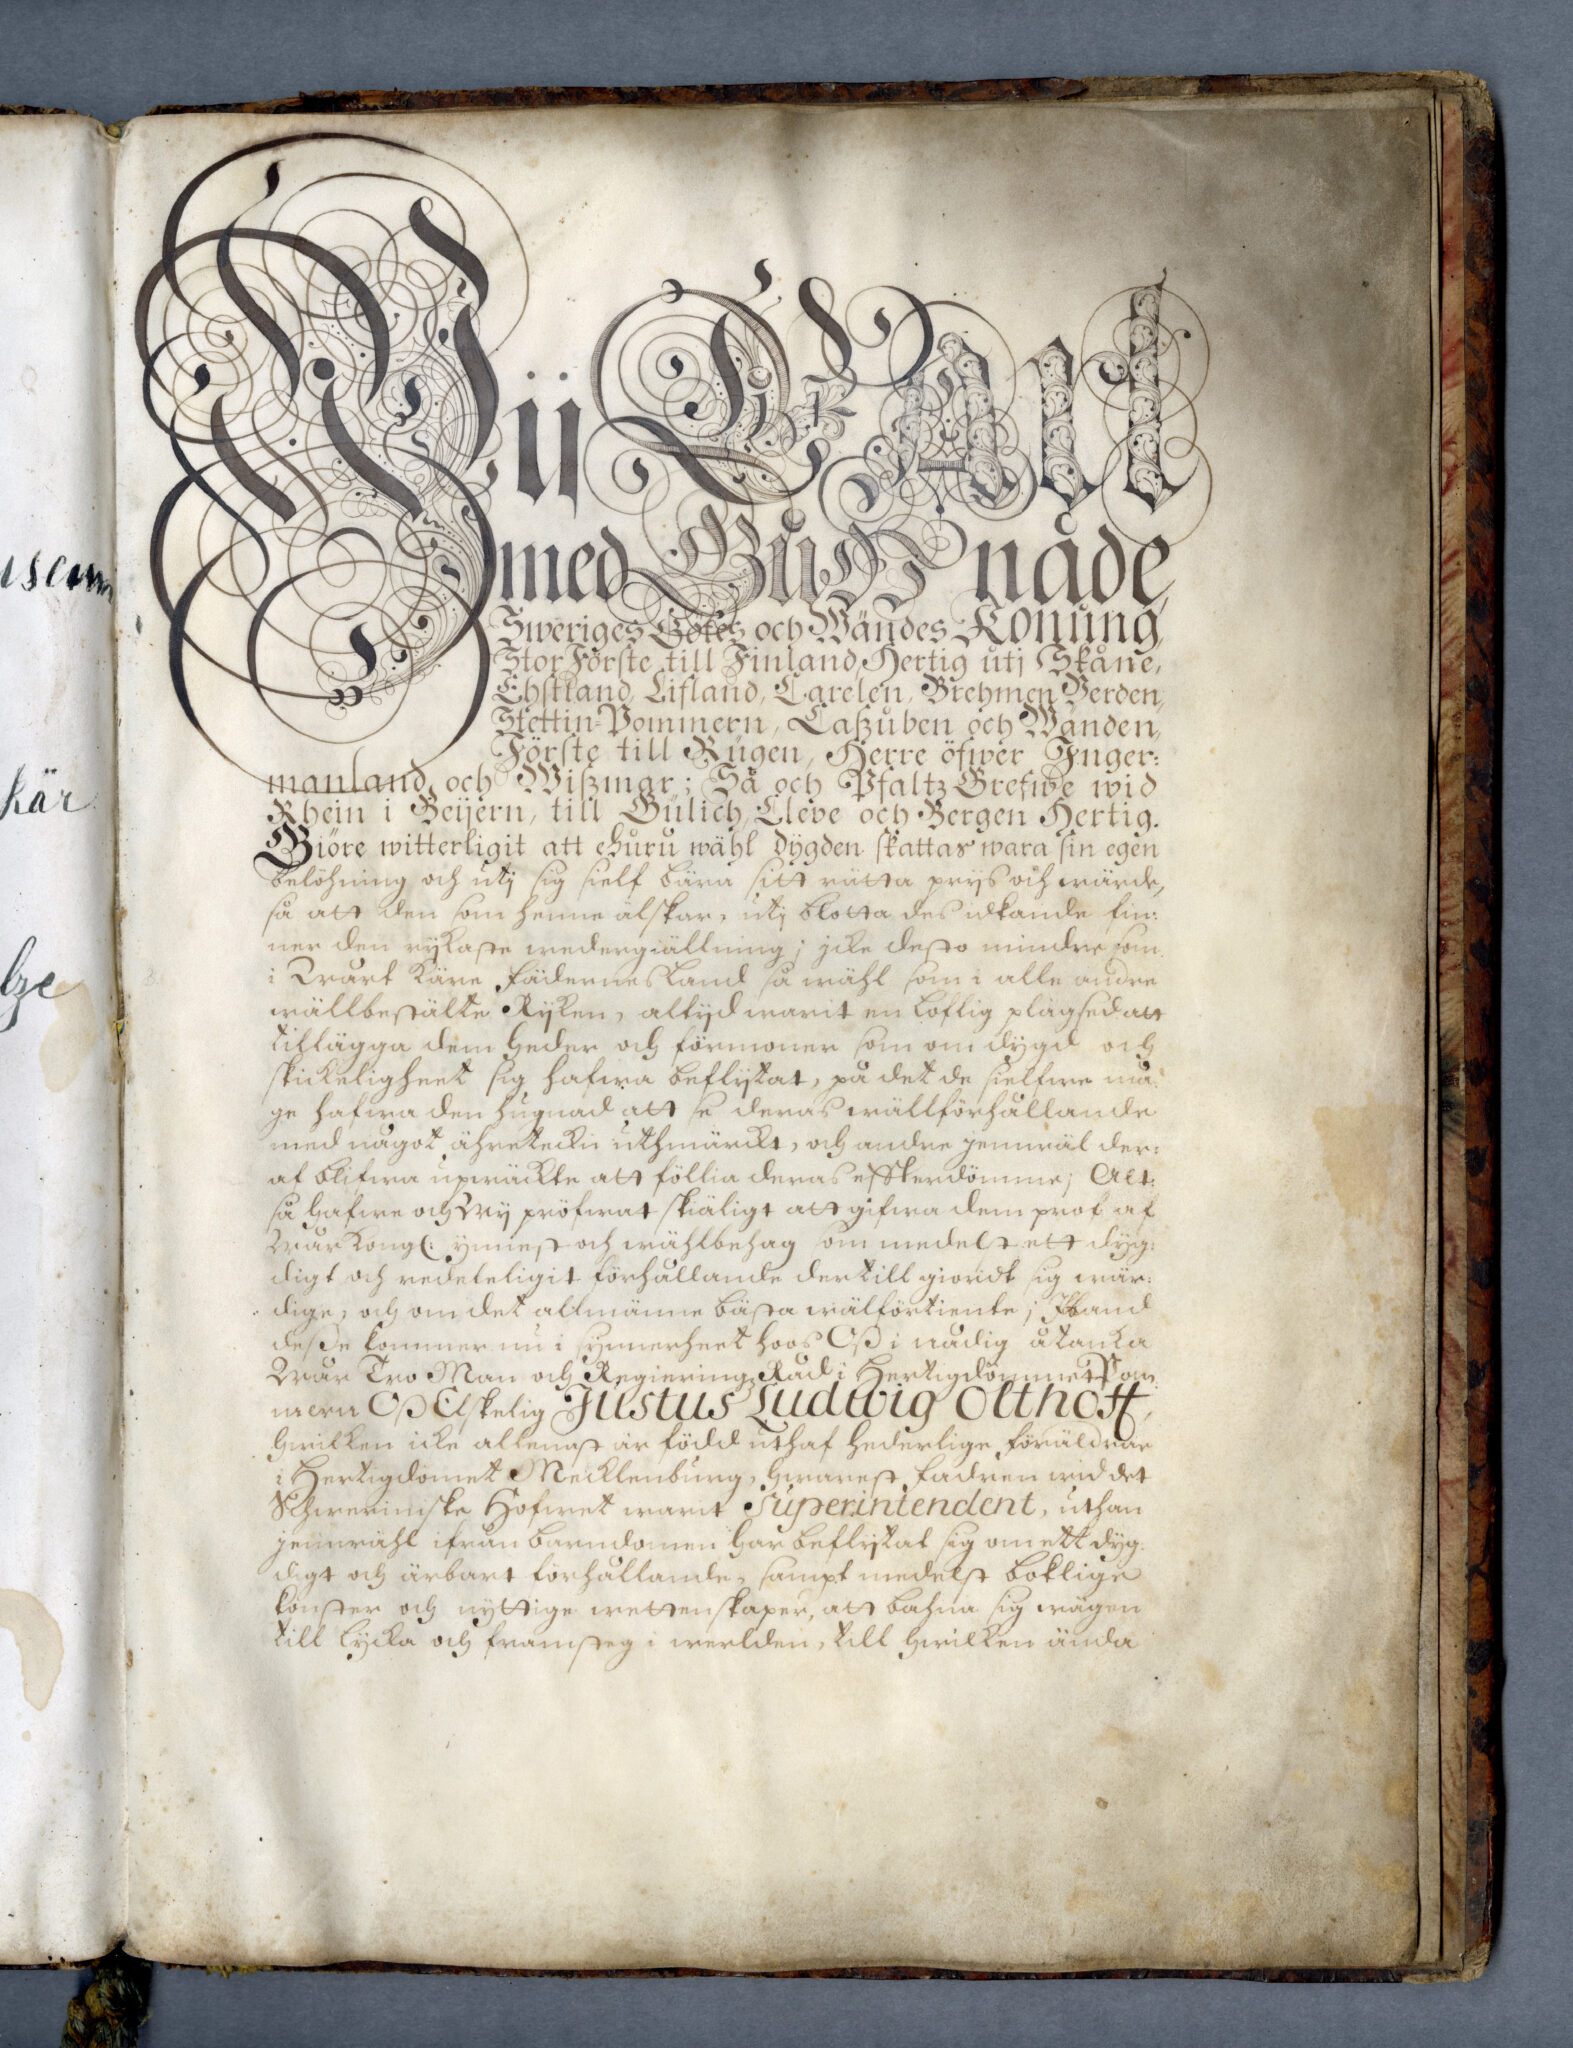 useum
kär
lze
Wij Carl
med Gudz nåde,
Sweriges Götes och Wändes Konung,
Stor Förste till Finland, Hertig utj Skåne,
Ehstland, Lifland, Carelen, Brehmen Verden,
Stettin-Pommern, Caßuben och Wänden,
Förste till Rügen, Herre öfwer Inger:
manland och Wißmar; Så och Pfaltz Grefwe wid
Rhein i Beijern, till Gülich, Cleve och Bergen Hertig.
Giöre witterligit att ehuru wähl dygden skattas wara sin egen
belöhning och utj sig sielf bära sitt rätta prys och wärde,
så att den som henne älskar, utj blotta des idkande fin:
ner den rykaste wedergiällning; icke desto mindre som
i Wårt Käre Fädernesland så wähl som i alle andre
wällbestälte Ryken, altyd warit en loflig plägsed att
tillägga dem heder och förmoner som om dygd och
skickeligheet sig hafwa beflytat, på det de sielfwe må:
ge hafwa den hugnad att se deras wällförhållande
med något ähretecken uthmärckt, och andre jemwäl der:
af blifwa upwäckte att föllia deras effterdömme; Alt:
så hafwe och Wij pröfwat skiäligt att gifwa dem prof af
Wår Kongl: ynnest och wählbehag som medelst ett dyg:
digt och redeteligit förhållande dertill giordt sig wär:
dige, och om det allmänne bästa wälförtiente; Ibland
deße kommer nu i synnerheet hoos Oß i nådig åtanka
Wår Tro Man och Regierings Råd i Hertigdömmet Pom:
mern Oß Elskelig Justus Ludwig Olthoff,
hwilken icke allenast är född uthaf hederlige föräldrar
i Hertigdömet Mecklenburg, hwarest fadren wid det
Schwerinske Hofwet warit Superintendent, uthan
jemwähl ifrån barndomen har beflytat sig om ett dyg:
digt och ärbart förhållande, sampt medelst boklige
konster och nyttige wettenskaper, att bahna sig wägen
till lycka och framsteg i werlden, till hwilken ända